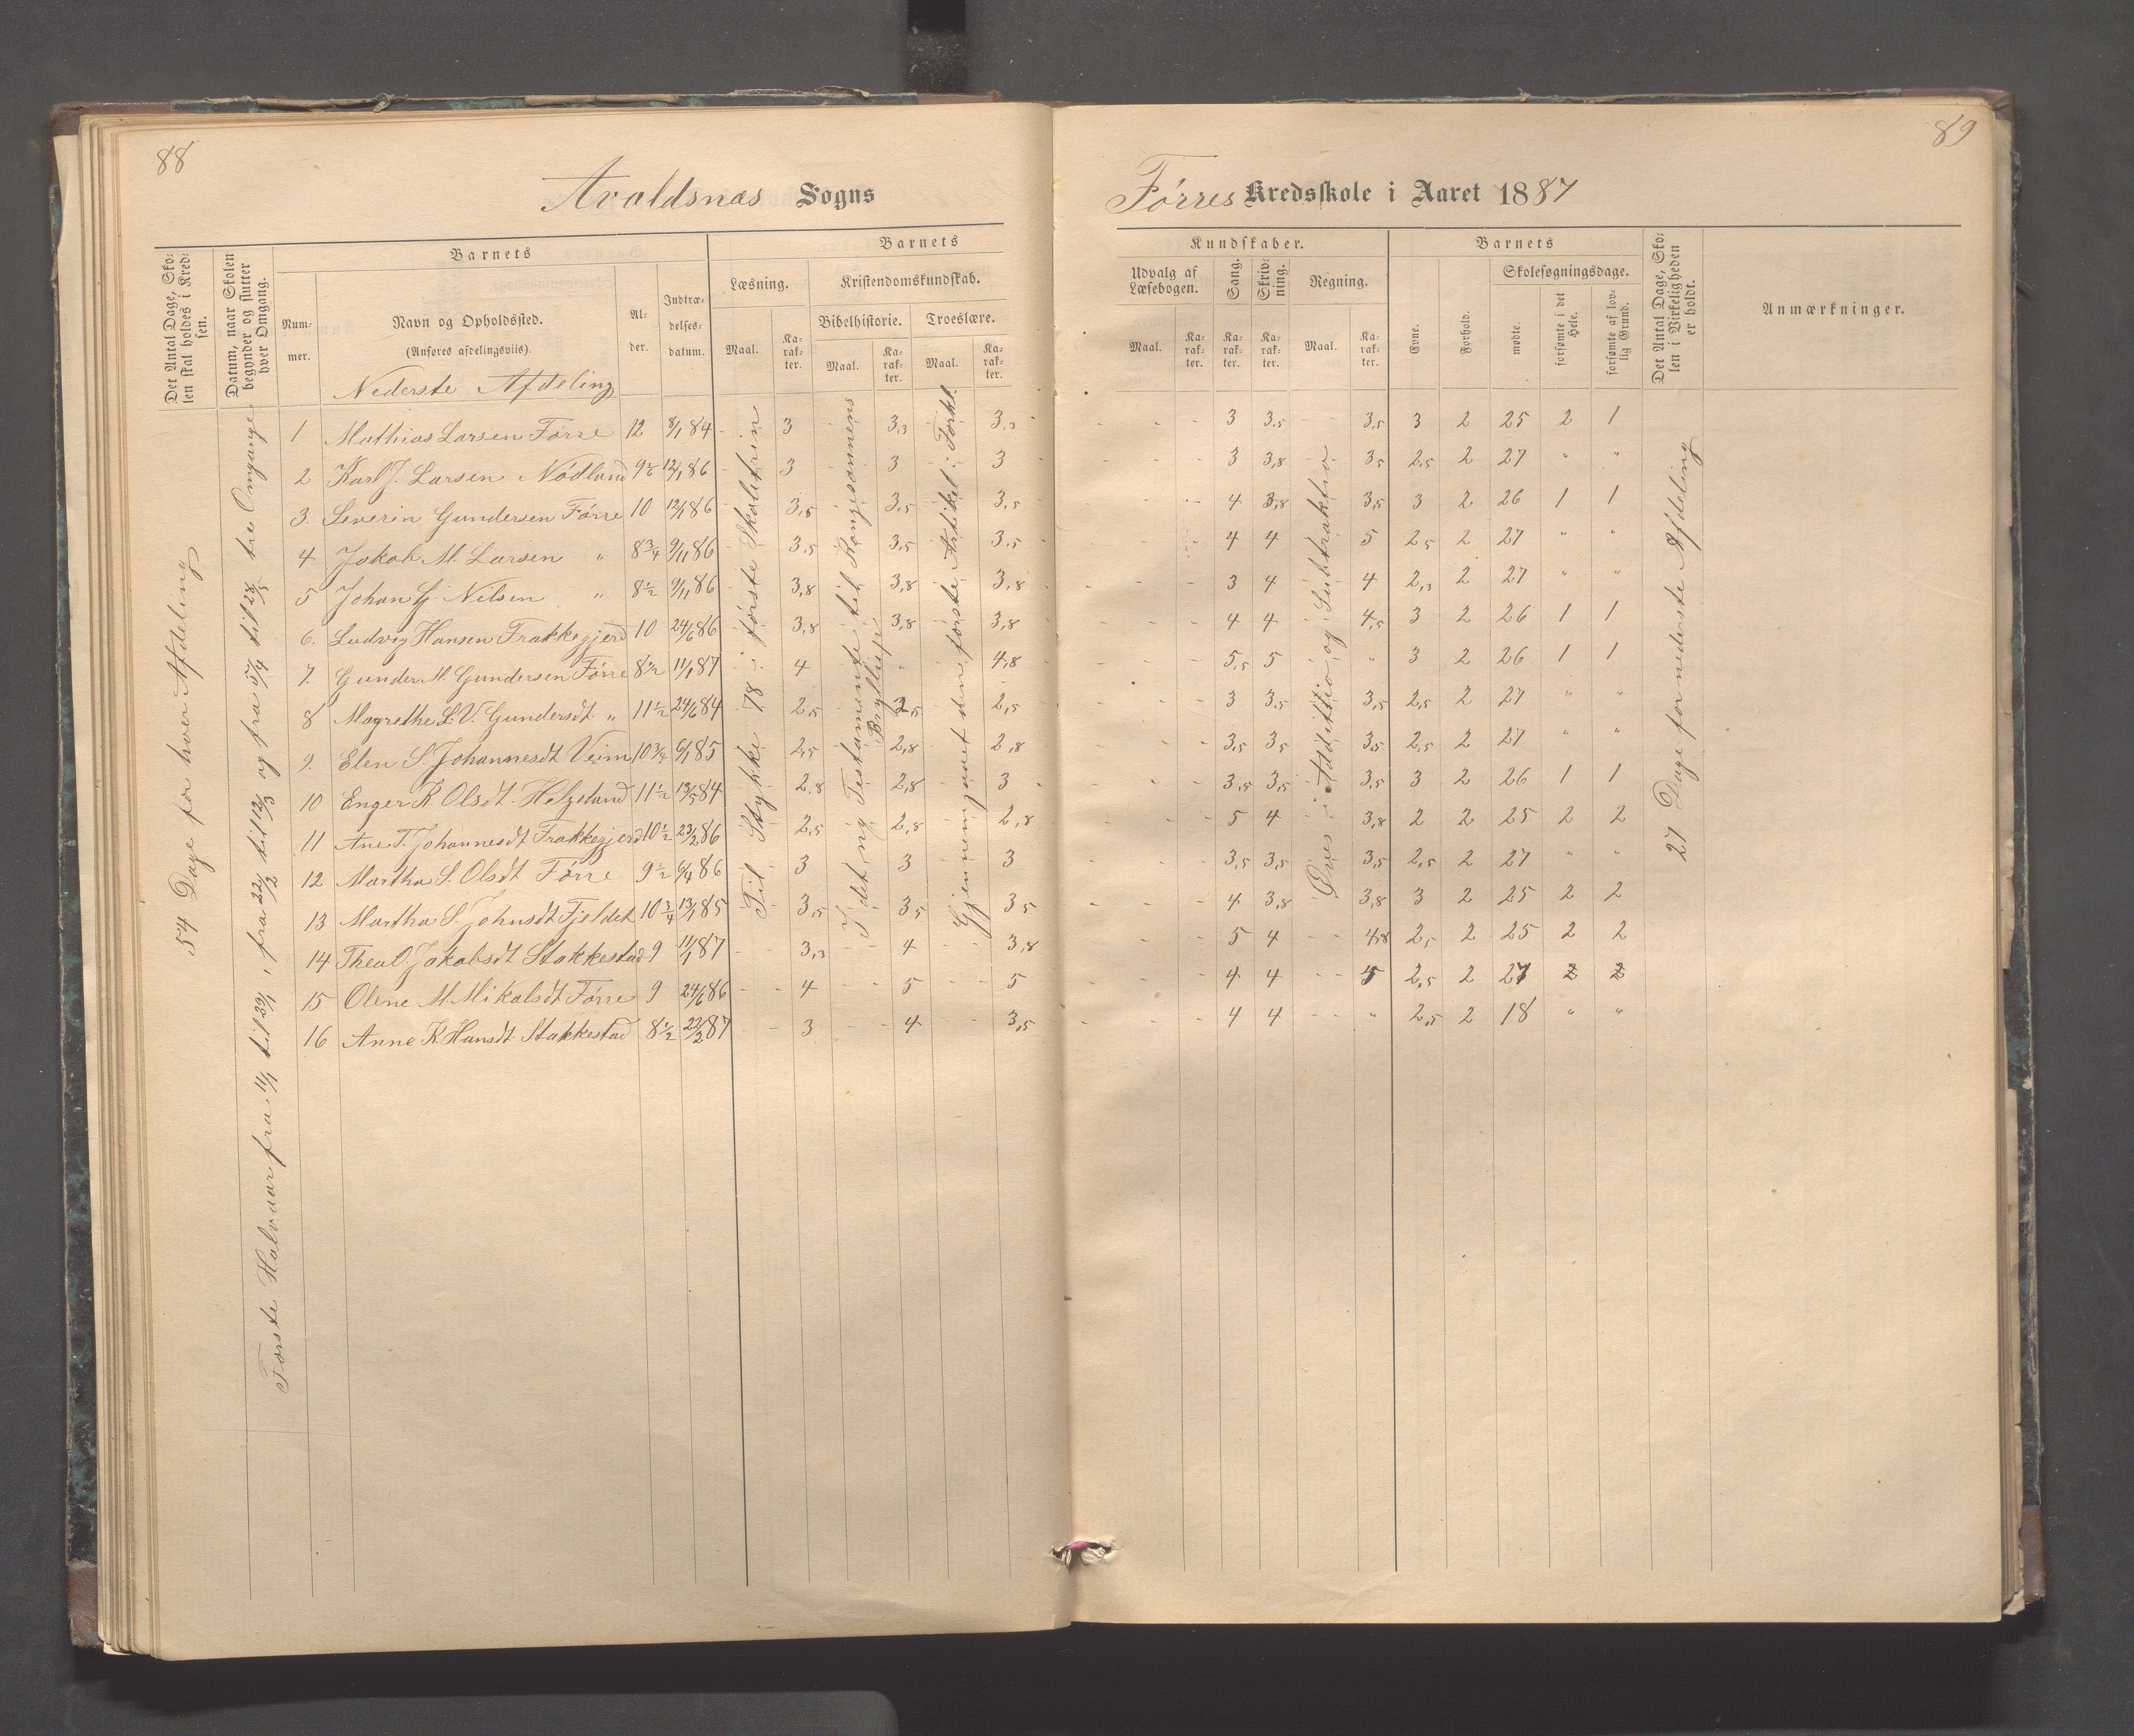 88
89
Avaldsnæs Sogns
Førres Kredsskole i Aaret 1887
Det Antal Dage, Skolen skal holdes i Kredsen.
Datum, naar Skolen begynder og slutter hver Omgang.
Barnets
Nummer.
Navn og Opholdssted.
(Anføres afdelingsviis).
Alder.
Indtrædelsesdatum.
Barnets
Læsning.
Maal.
Karakter.
Kristendomskundskab.
Bibelhistorie.
Maal.
Karakter.
Troeslære.
Maal.
Karakter.
Kundskaber.
Udvalg af Læsebogen.
Maal.
Karakter.
Sang.
Karakter.
Skrivning.
Karakter.
Regning.
Maal.
Karakter.
Barnets
Evne.
Forhold.
Skolesøgningsdage.
mødte.
forsømte i det Hele.
forsømte af lovlig Grund.
Det Antal Dage, Skolen i Virkeligheden er holdt.
Anmærkninger.
Nederste Afdeling
54 Dage for hver Afdeling
Første Halvaar fra 11/1 til 39/1, fra 22/2 til 12/3 og fra 5/4 til 28/5 tre Omgange
Til Stykke 78 i første Skoletrin
I det ny Testamente til Kongesønnens Bryllup
Gjennemgaaet den første Artikel: Forkl.
Øves i Addittio og Subtraktio
27 Dage for nederste Afdeling
1 Mathias Larsen Førre 12 8/1 84 3 3,3 3,3 3 3,5 3,5 3 2 25 2 1
2 Karl J. Larsen Nödland 9½ 12/1 86 3 3 3 3 3,8 3,5 2,5 2 27 " "
3. Severin Gundersen Førre 10 12/1 86 3,5 3,5 3,5 4 3,8 3,5 3 2 26 1 1
4 Jakob M. Larsen " 8¾ 9/11 86 3,5 3,5 3,5 4 4 5 2,5 2 27 " "
5 Johan G. Nilsen " 8½ 9/11 86 3,8 3,8 3,8 3 4 4 2,3 2 27 " "
6. Ludvig Hansen Frakkegjerd 10 24/6 86 3,8 3,8 3,8 4 4 4,5 3 2 26 1 1
7. Gunder M. Gundersen Førre 8½ 11/1 87 4 " 4,8 5,5 5 " 3 2 26 1 1
8 Magrethe L. V. Gundersdt " 11½ 24/6 84 2,5 2,5 2,5 3 3,5 3,5 2,5 2 27 " "
9. Elen S. Johannesdt Veim 10¾ 6/1 85 2,5 2,8 2,8 3,5 3,5 3,5 2,5 2 27 " "
10 Enger K Olsdt Helgeland 11½ 13/5 84 2,8 2,8 3 3,5 3,5 3,5 3 2 26 1 1
11 Ane T. Johannesdt Frakkegjerd 10½ 23/2 86 2,5 2,8 2,8 5 4 3,8 2 2 25 2 2
12 Martha S. Olsdt Førre 9½ 6/4 86 3 3 3 3,5 3,5 3,5 2,5 2 27 " "
13 Martha S. Johnsdt Fjeldet 10¾ 13/1 85 3,5 3,5 3,5 4 3,8 3,8 3 2 25 2 2
14 Thea O. Jakobsdt Stakkestad 9 11/1 87 3,3 4 3,8 5 4 4,8 2,5 2 25 2 2
15 Oline M. Mikalsdt Førre 9 24/6 86 4 5 5 4 4 5 2,5 2 27
16 Anne K. Hansdt. Stakkestad 8½ 22/2 87 3 4 3,5 4 4 " 2,5 2 18 " "